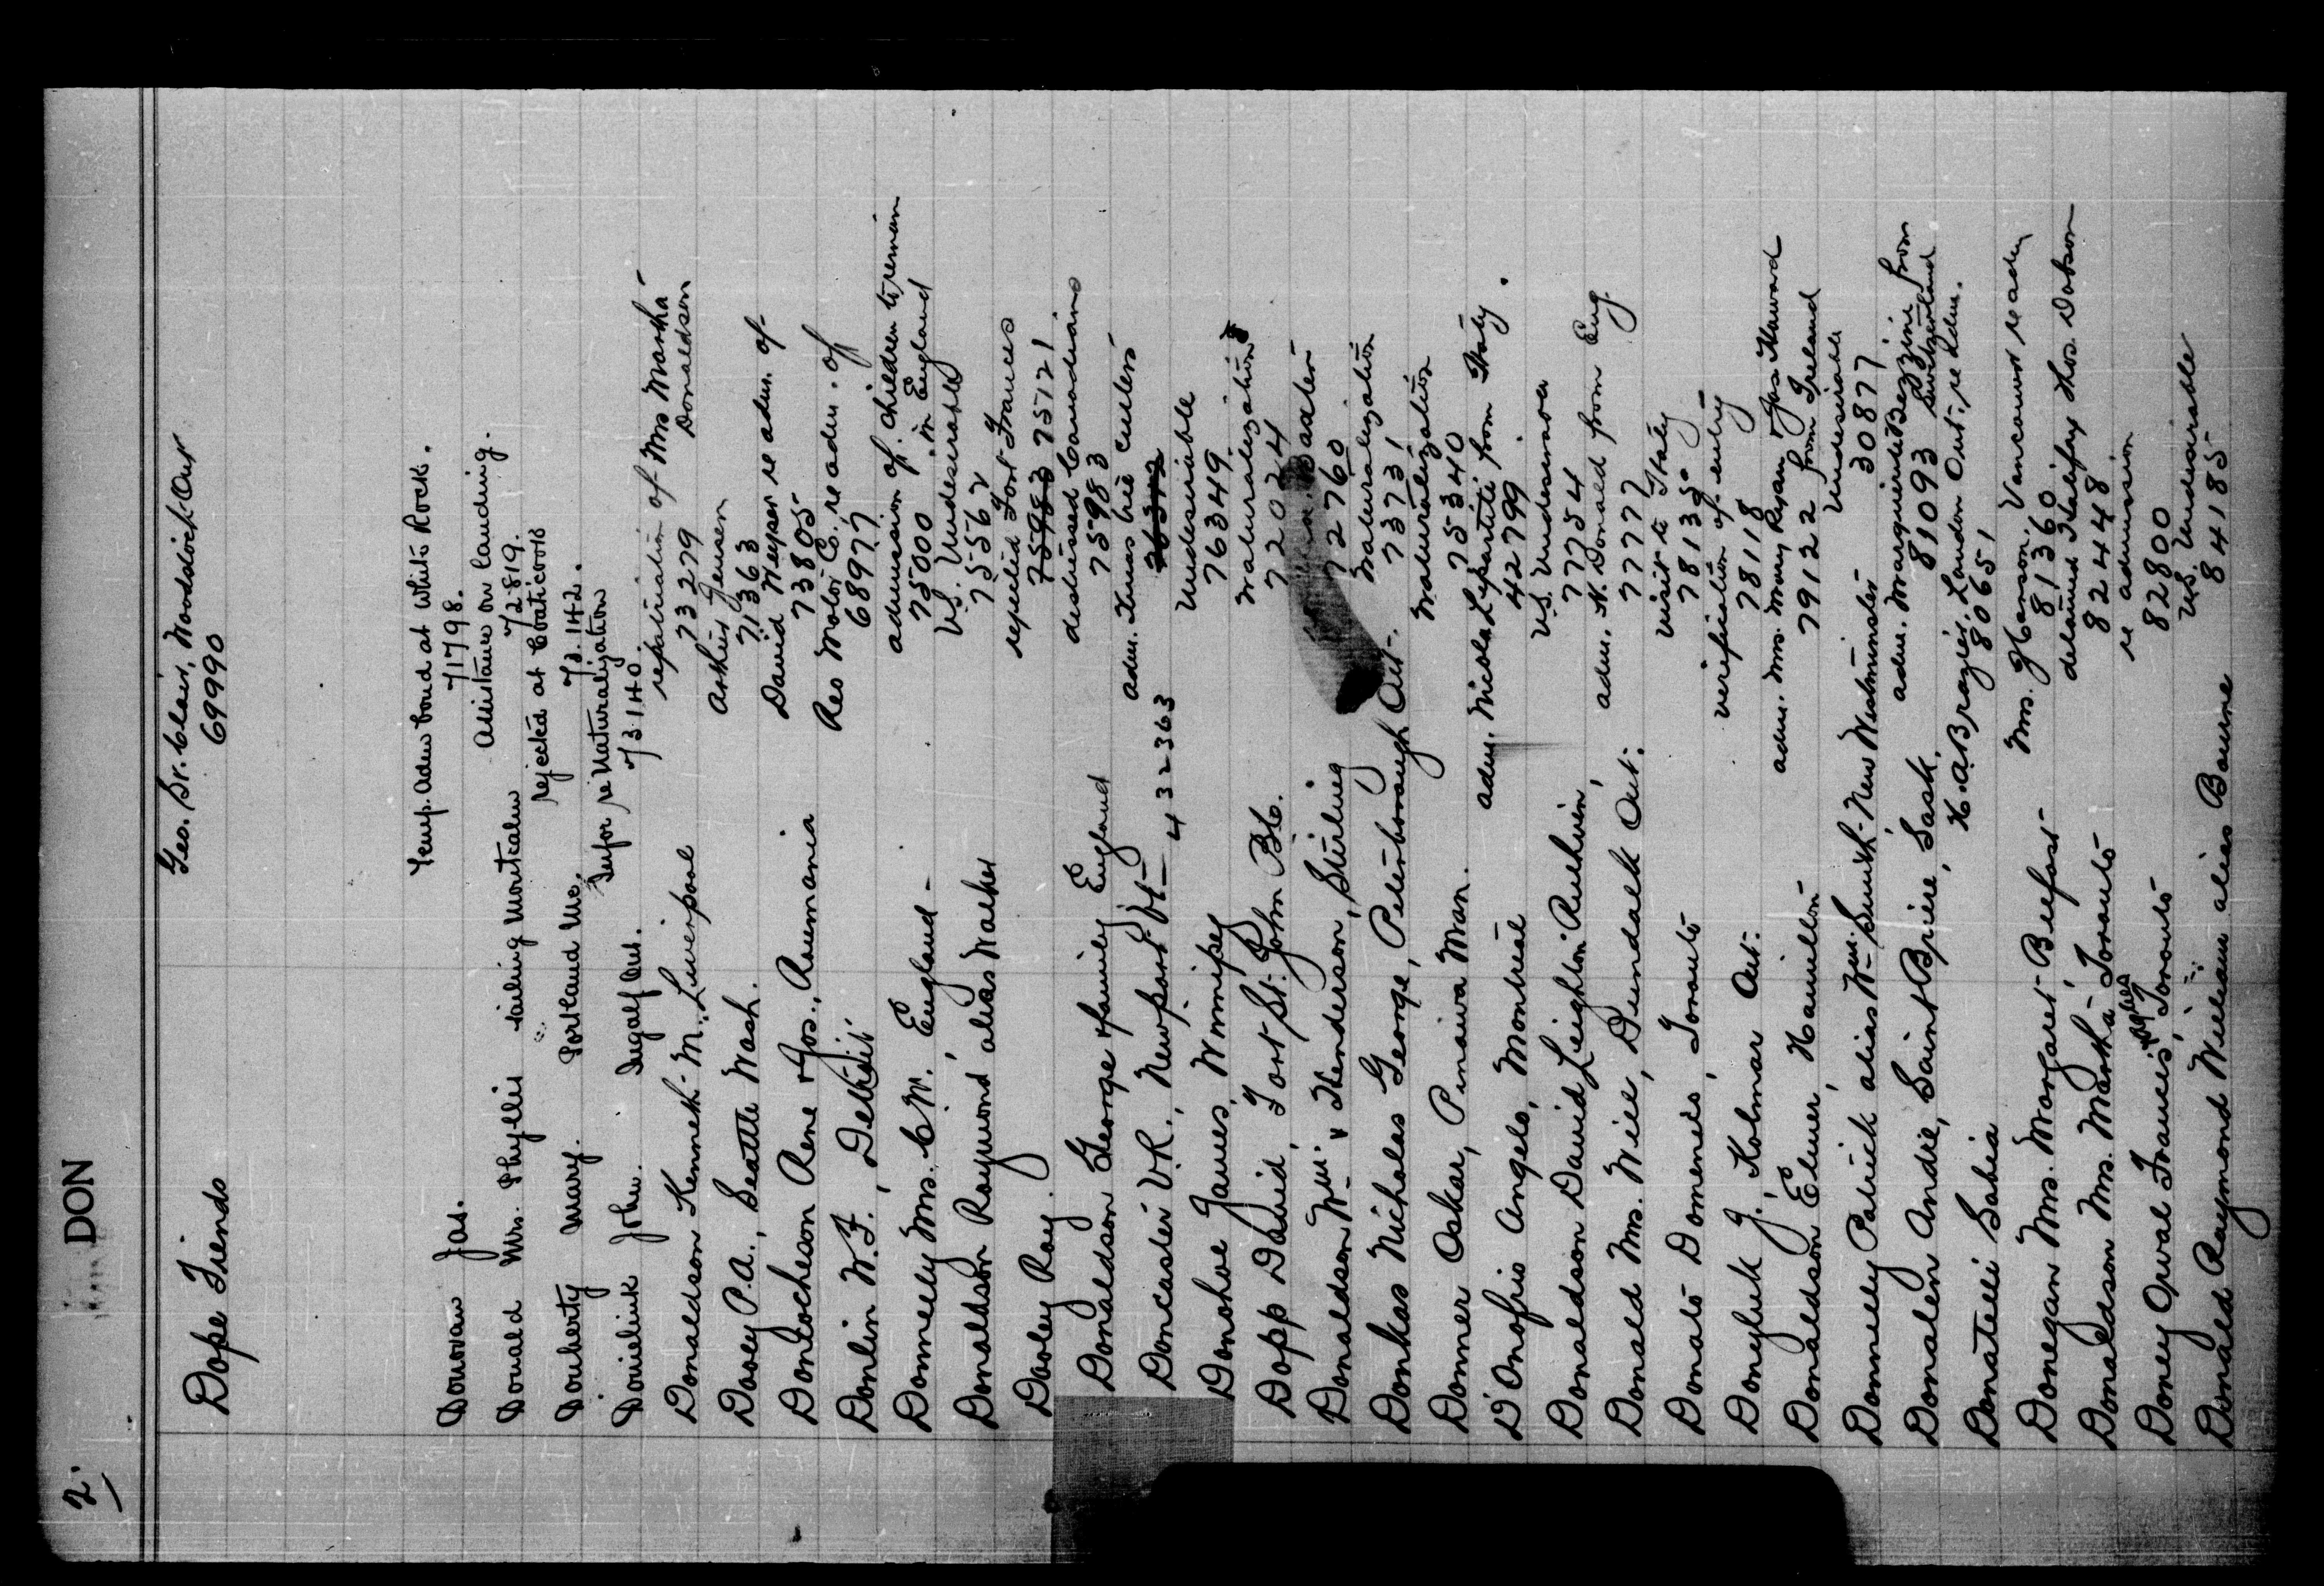 2. DON
Geo. St. Clair, Woodstock Ont
Dope Fiends 69990
Temp. Adm bond at White Rock.
Donovan Jas. 71798.
Assistance on landing.
Donald Mrs. Phyllis sailing Montcalm 72819.
rejected at Coaticook
Douberty Mary. Portland Me. 73142.
Infor re Naturalization
Danieliuk John. Ingolf Ont. 73140.
repatriation of Mrs Martha Donaldson
Donaldson Kenneth M., Liverpool 73279
Arthur Jensen
Dooey P.A., Seattle Wash. 71363
David Meyser re adm. of
Dontocheson Rene & Jos., Roumania 73805
Reo Motor Co. re adm. of
Donlin W.F., Detroit 68977
admission of children to remain in England
Donnelly Mrs. C.W., England - 75000
U.S. Undesirable
Donaldson Raymond alias Walker 75562
reported Fort Frances
Dooley Roy. 75983 75121
distressed Canadians
Donaldson George & family England 75983
adm. Thomas Cullen
Doncaster V.R., Newport Vt - 432363
Undesirable
Donohoe James, Winnipeg 76349
Naturalization
Dopp David, Fort St. John B.C. 72024
Donaldson Wm. & Henderson, Stirling 72760
Naturalization
Donkas Nicholas George, Peterborough Ont. 73731
Naturalization
Donner Oskar, Pinaiwa Man. 75340
adm. Nicola Lepartiti from Italy.
D'Onofrio Angelo, Montreal 42799
U.S. Undesirable
Donaldson David Leighton Ruthven, 77754
adm. N. Donald from Eng.
Donald Mrs. Will, Dundalk Ont. 77777
visit to Italy
Donato Domenic, Toronto 78135
verification of entry
Doneyluk J., Kolmar Ont. 78118
adm. Mrs. Mary Ryan & Jas Howard from Ireland
Donaldson Elmer, Hamilton 79122
Undesirable
Donnelly Patrick alias Wm. Smith, New Westminster 30877
adm. Marguerite Bezzini from Switzerland
Donalen Andie, Saint Brieux, Sask. 81093
H.A. Brazier, London Ont. re adm.
Donatelli Sabia 80651
Mrs. Hanson, Vancouver re adm
Donegan Mrs. Margaret, Belfast 81360
detained Halifax Thos. Dobson
Donaldson Mrs. Martha, Toronto 82448
re admission
Doney Orval Francis, Toronto 82800
U.S. Undesirable
Donald Raymond William alias Bourne 84185